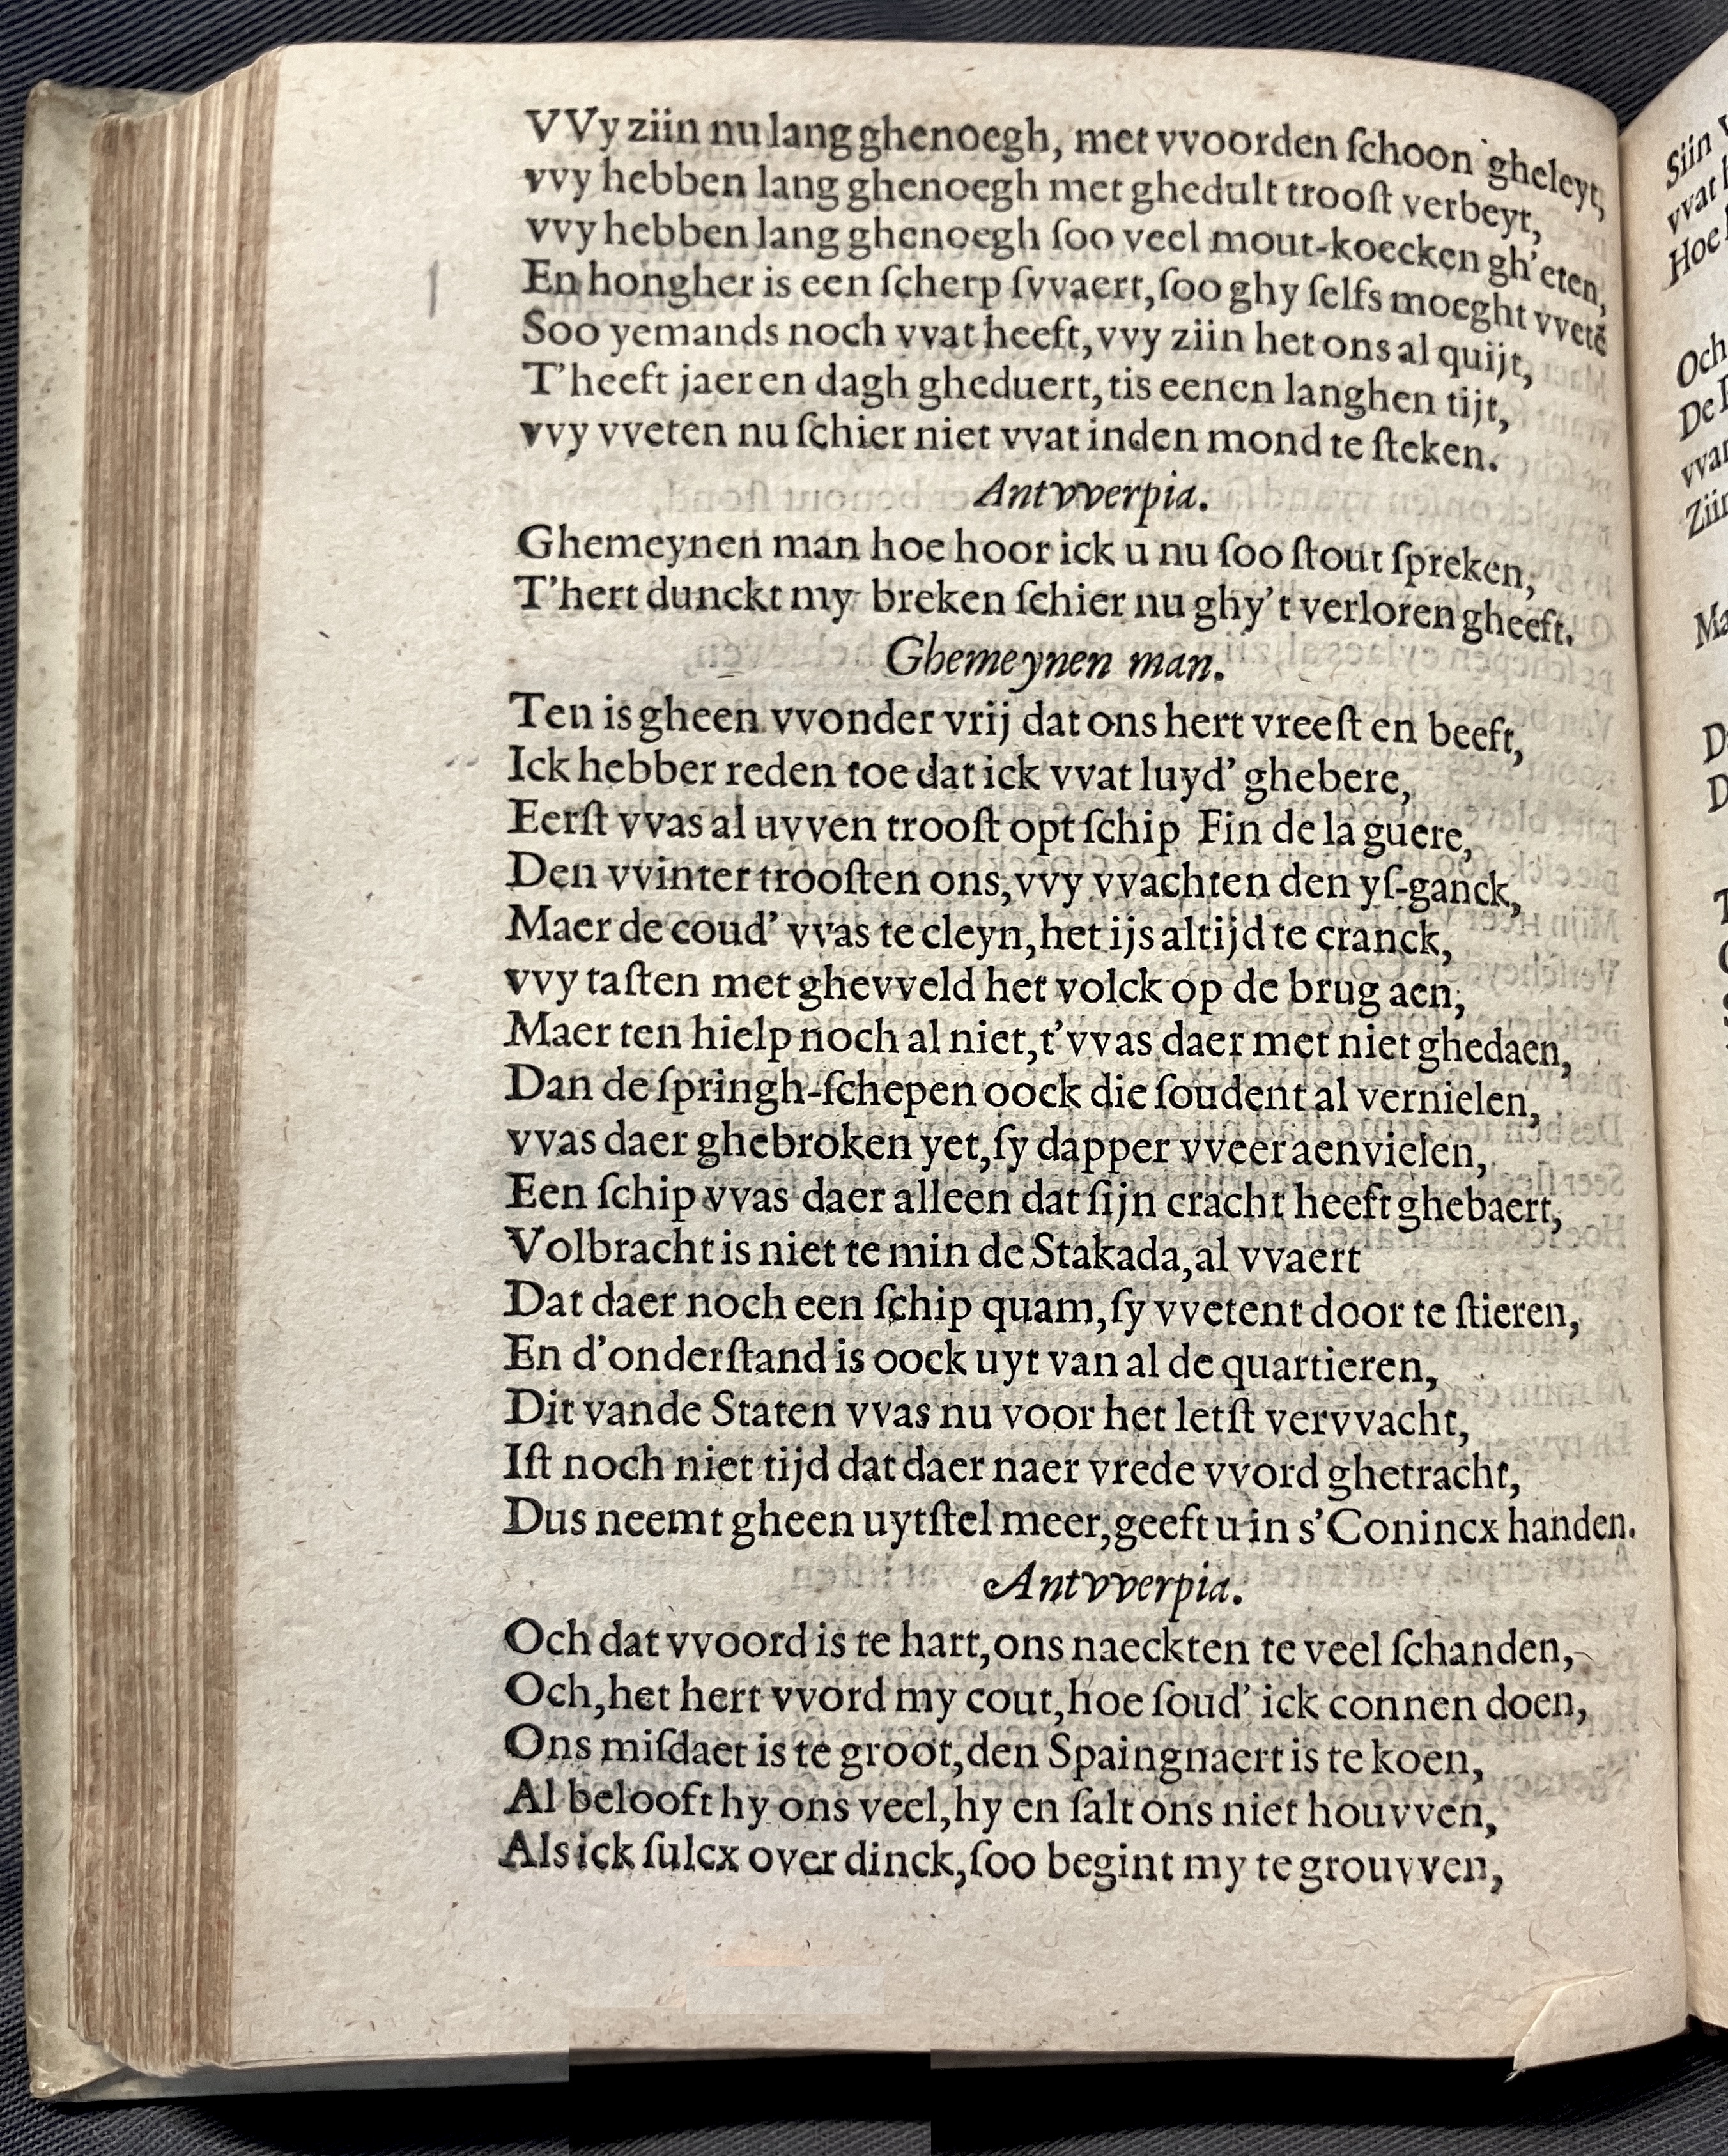 VVy ziin nu lang ghenoegh, met vvoorden ſchoon gheleyt,
vvy hebben lang ghenoegh met ghedult trooſt verbeyt,
vvy hebben lang ghenoegh ſoo veel mout-koecken gh'eten,
En hongher is een ſcherp ſvvaert, ſoo ghy ſelfs moeght vvetẽ
Soo yemands noch vvat heeft, vvy ziin het ons al quijt,
T'heeft jaer en dagh gheduert, tis eenen langhen tijt,
vvy vveten nu ſchier niet vvat inden mond te ſteken.
Antvverpia.
Ghemeynen man hoe hoor ick u nu ſoo ſtout ſpreken,
T'hert dunckt my breken ſchier nu ghy't verloren gheeft.
Ghemeynen man.
Ten is gheen vvonder vrij dat ons hert vreeſt en beeft,
Ick hebber reden toe dat ick vvat luyd' ghebere,
Eerſt vvas al uvven trooſt opt ſchip Fin de la guere,
Den vvinter trooſten ons, vvy vvachten den yſ-ganck,
Maer de coud' vvas te cleyn, het ijs altijd te cranck,
vvy taſten met ghevveld het volck op de brug aen,
Maer ten hielp noch al niet, t'vvas daer met niet ghedaen,
Dan de ſpringh-ſchepen oock die ſoudent al vernielen,
vvas daer ghebroken yet, ſy dapper vveer aenvielen,
Een ſchip vvas daer alleen dat ſijn cracht heeft ghebaert,
Volbracht is niet te min de Stakada, al vvaert
Dat daer noch een ſchip quam, ſy vvetent door te ſtieren,
En d'onderſtand is oock uyt van al de quartieren,
Dit vande Staten vvas nu voor het letſt vervvacht,
Iſt noch niet tijd dat daer naer vrede vvord ghetracht,
Dus neemt gheen uytſtel meer, geeft u in s'Conincx handen.
Antvverpia.
Och dat vvoord is te hart, ons naeckten te veel ſchanden,
Och, het hert vvord my cout, hoe ſoud' ick connen doen,
Ons miſdaet is te groot, den Spaingnaert is te koen,
Al belooft hy ons veel, hy en ſalt ons niet houvven,
Als ick ſulcx over dinck, ſoo begint my te grouvven,
Siin
vvat
Hoe
Och
De
vvan
Ziin
Ma
D
D